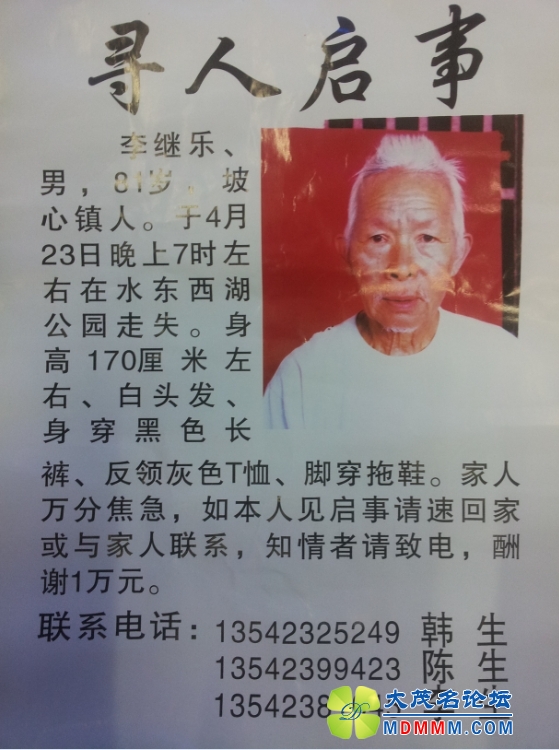 寻人启事
李继乐、
男，81岁，坡
心镇人。于4月
23日晚上7时左
右在水东西湖
公园走失。身
高170厘米左
右、白头发、
身穿黑色长
裤、反领灰色T恤、脚穿拖鞋。家人
万分焦急，如本人见启事请速回家
或与家人联系，知情者请致电，酬
谢1万元。
联系电话：13542325249 韩生
13542399423 陈生
1354238
大茂名论坛
MDMMM.COM